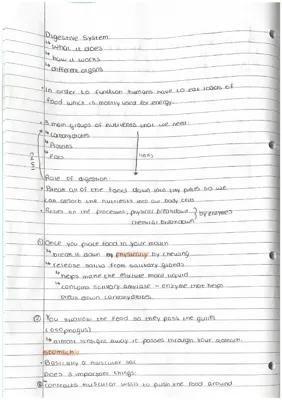 Digestive System
↳ what it does
↳ how it works
↳ different organs
• In order to function humans have to eat loads of
food which is mostly used for energy.
• 3 main groups of nutrients that we need:
↳ Carbohydrates
↳ Proteins
↳ Fats
Role of digestion:
• Break all of the foods down into tiny pieces so we
can absorb the nutrients into our body cells
• Relies on the processes; physical breakdown } by enzymes
chemical breakdown
① Once you place food in your mouth
↳ break it down by physically by chewing
↳ release saliva from salivary glands
↳ helps make the mixture more liquid
↳ contains salivary amylase - enzyme that helps
break down carbohydrates.
② You swallow the food so they pass the gullet
(oesophagus)
↳ almost straight away it passes through your
stomach:
• Basically a muscular sac
Does 3 important things:
① contracts muscular walls to push the food around